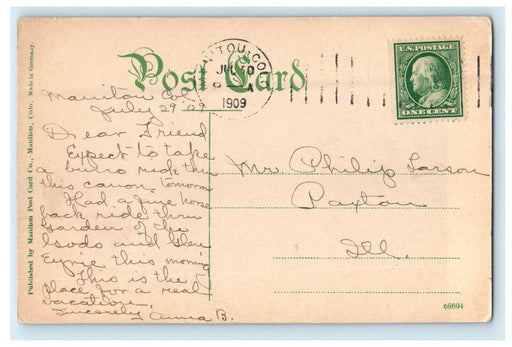 Post Card
MANITOU, COLO.
JUL 30
A
1909
U.S. POSTAGE
ONE CENT
Manitou Col.
July 29 '09
Dear Friend
Expect to take
a burro ride thru
this canon tomorrow
Had a fine horse
back ride thru
Garden of the
Gods and Glen
Eyrie this morning
This is the
place for a real
vacation.
Sincerely Anna B.
Mr. Philip Larson
Paxton
Ill.
Published by Manitou Post Card Co., Manitou, Colo. Made in Germany.
68694